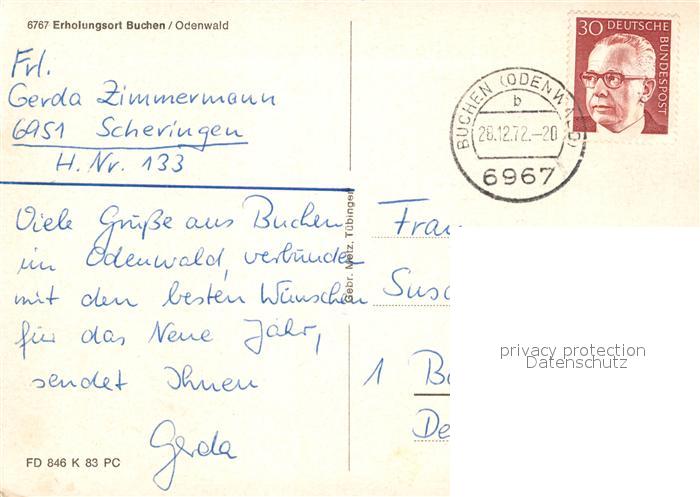 6767 Erholungsort Buchen / Odenwald
Frl.
Gerda Zimmermann
6951 Scheringen
H. Nr. 133
Viele Grüße aus Buchen
im Odenwald, verbunden
mit den besten Wünschen
für das Neue Jahr,
sendet Ihnen
Gerda
FD 846 K 83 PC
Gebr. Metz, Tübingen
30 DEUTSCHE
BUNDESPOST
BUCHEN (ODENWALD)
b
28.12.72.-20
6967
Frau
Susa
1 B
De
privacy protection
Datenschutz